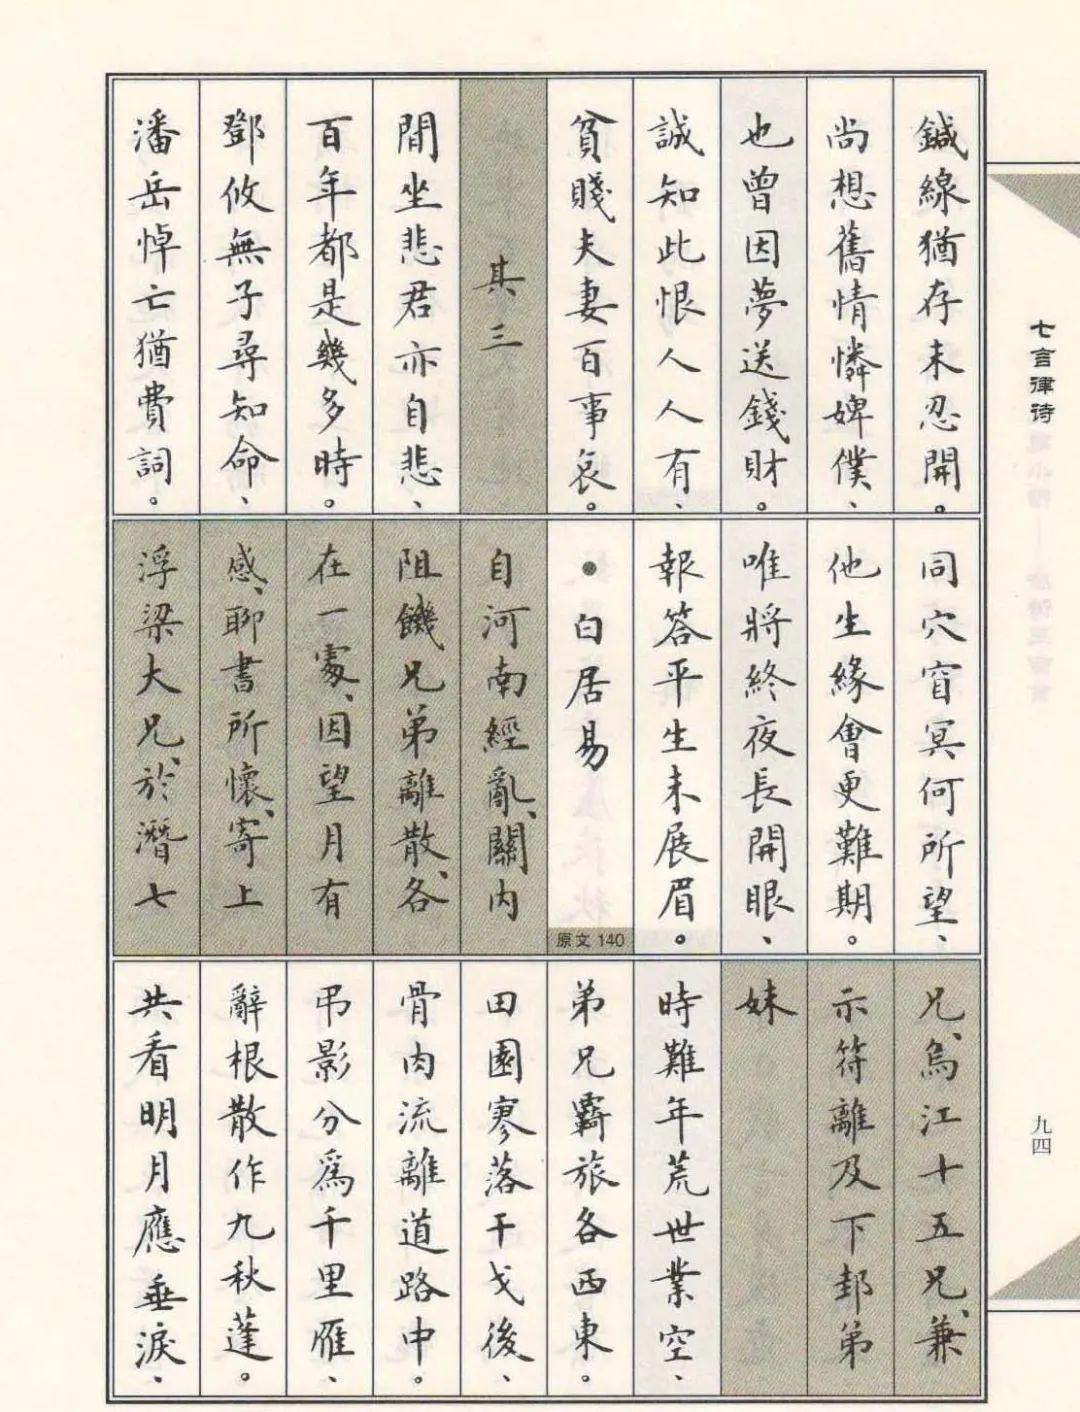 鍼線猶存未忍開。
尚想舊情憐婢僕、
也曾因夢送錢財。
誠知此恨人人有、
貧賤夫妻百事哀。
其三
閒坐悲君亦自悲、
百年都是幾多時。
鄧攸無子尋知命、
潘岳悼亡猶費詞。
同穴窅冥何所望、
他生緣會更難期。
唯將終夜長開眼、
報答平生未展眉。
●白居易
原文 140
自河南經亂、關内
阻饑兄弟離散、各
在一處、因望月有
感、聊書所懷、寄上
浮梁大兄、於潛七
兄、烏江十五兄、兼
示符離及下邽弟
妹
時難年荒世業空、
弟兄羇旅各西東。
田園寥落干戈後、
骨肉流離道路中。
弔影分爲千里雁、
辭根散作九秋蓬。
共看明月應垂淚、
七言律诗
九四